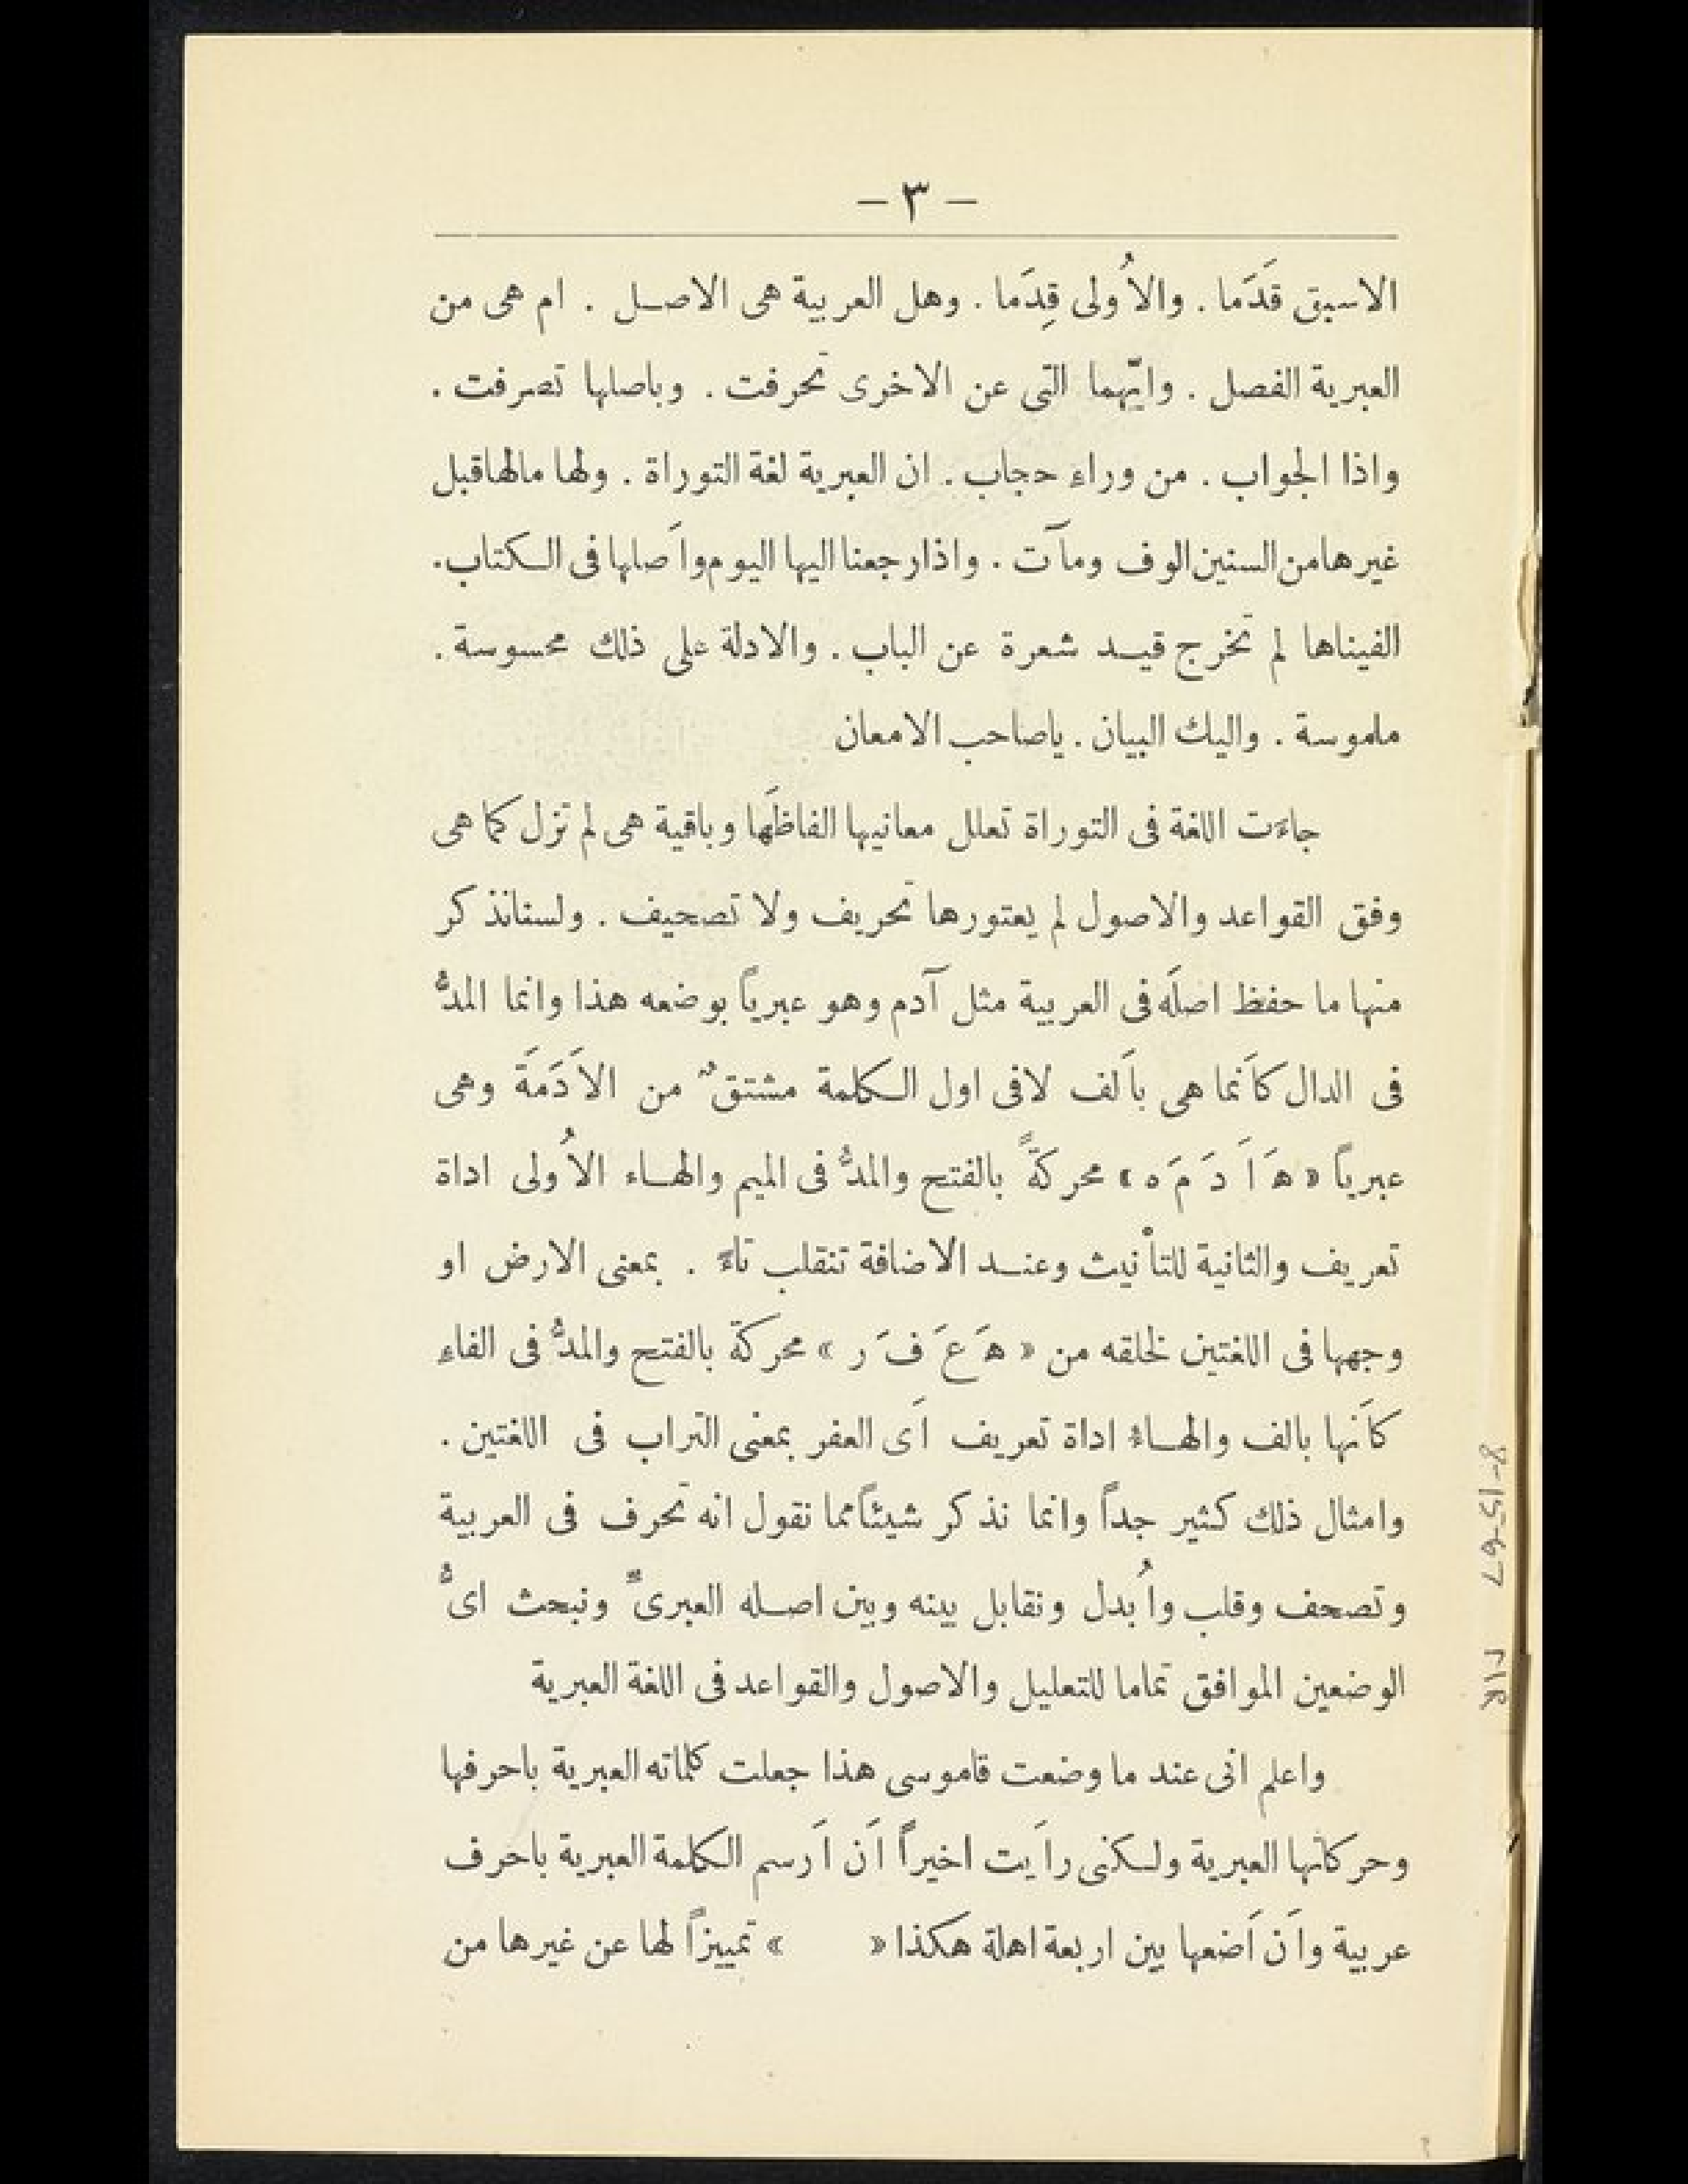 — ٣ —
الاسبق قَدَما . والأُولى قِدَما . وهل العربية هى الاصل . ام هى من
العبرية الفصل . وايّهما التى عن الاخرى تحرفت . وباصلها تصرفت .
واذا الجواب . من وراء حجاب . ان العبرية لغة التوراة . ولها مالها قبل
غيرها من السنين الوف ومآت . واذا رجعنا اليها اليوم وأَصلها فى الكتاب .
الفيناها لم تخرج قيد شعرة عن الباب . والادلة على ذلك محسوسة .
ملموسة . واليك البيان . ياصاحب الامعان
جاءَت اللغة فى التوراة تعلل معانيها الفاظَها وباقية هى لم تزل كما هى
وفق القواعد والاصول لم يعتورها تحريف ولا تصحيف . ولسنا نذكر
منها ما حفظ اصلَه فى العربية مثل آدم وهو عبرياً بوضعه هذا وانما المدُّ
فى الدال كأَنما هى بأَلف لا فى اول الكلمة مشتقٌ من الأَدَمَة وهى
عبرياً « هَ أَ دَ مَ ه » محركةً بالفتح والمدُّ فى الميم والهاء الأُولى اداة
تعريف والثانية للتأْنيث وعند الاضافة تنقلب تاءً . بمعنى الارض او
وجهها فى اللغتين لخلقه من « هَ عَ فَ ر » محركة بالفتح والمدُّ فى الفاءِ
كأَنها بالف والهاءُ اداة تعريف أَى العفر بمعنى التراب فى اللغتين .
وامثال ذلك كثير جداً وانما نذكر شيئاً مما نقول انه تحرف فى العربية
وتصحف وقلب وأُبدل ونقابل بينه وبين اصله العبرىّ ونبحث اىُّ
الوضعين الموافق تماما للتعليل والاصول والقواعد فى اللغة العبرية
واعلم انى عند ما وضعت قاموسى هذا جعلت كلماته العبرية باحرفها
وحركاتها العبرية ولكنى رأَيت اخيراً أَن أَرسم الكلمة العبرية باحرف
عربية وأَن أَضعها بين اربعة اهلة هكذا « » تمييزاً لها عن غيرها من
8-15-67 RIJ